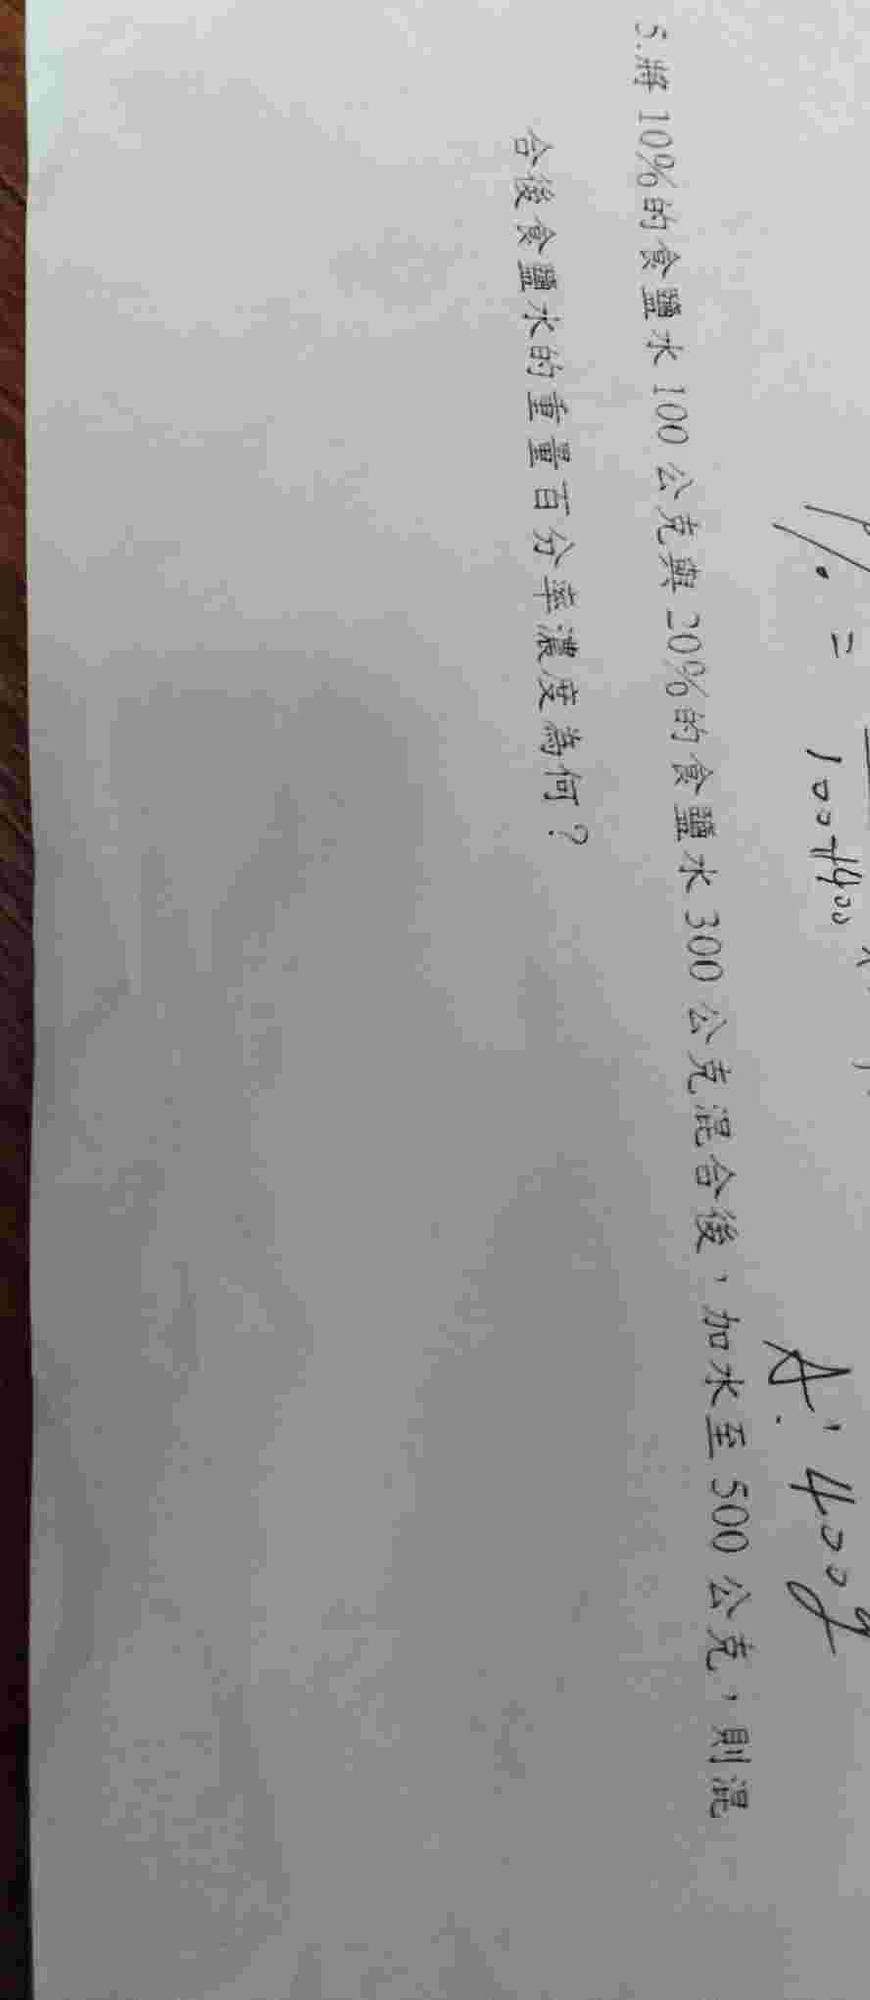 % =
100+400
A: 400g
5.將 10%的食鹽水 100 公克與 20%的食鹽水 300 公克混合後，加水至 500 公克，則混
合後食鹽水的重量百分率濃度為何？